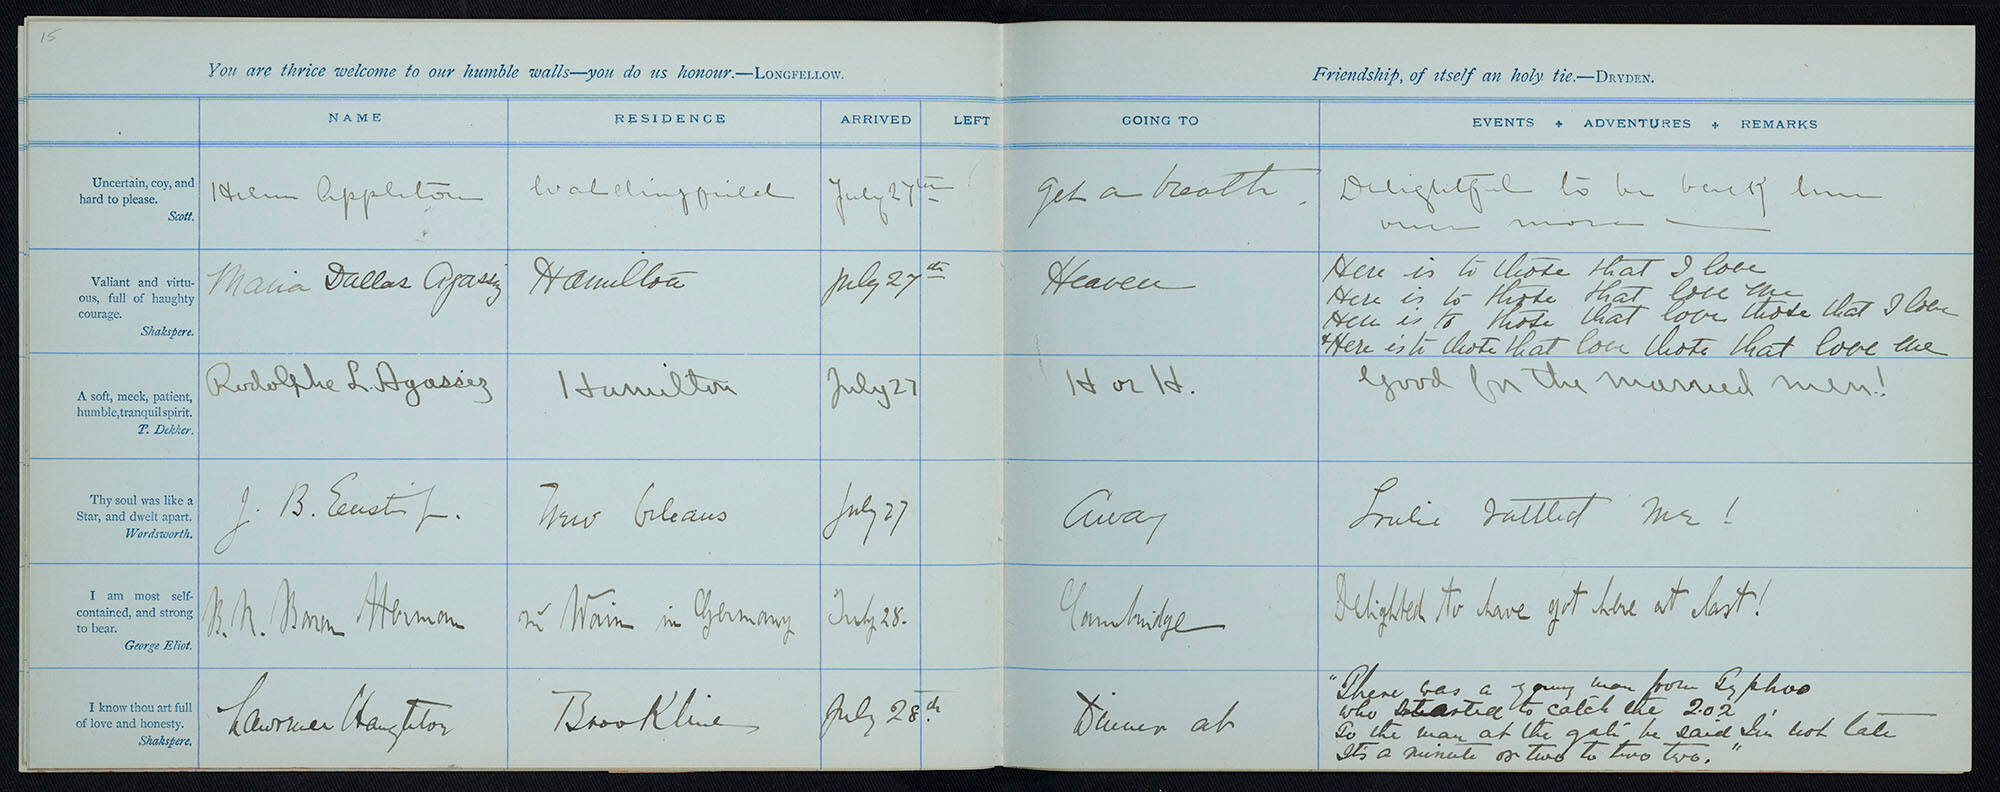 15
You are thrice welcome to our humble walls—you do us honour.—LONGFELLOW.
Friendship, of itself an holy tie.—DRYDEN.
NAME RESIDENCE ARRIVED LEFT GOING TO EVENTS + ADVENTURES + REMARKS
Uncertain, coy, and
hard to please.
Scott.
Helen Appleton
Waldingfield
July 27th
Get a breath.
Delightful to be back here
once more
Valiant and virtu-
ous, full of haughty
courage.
Shakspere.
Maria Dallas Agassiz
Hamilton
July 27th
Heaven
Here is to those that I love
Here is to those that love me
Here is to those that love those that I love
& Here is to those that love those that love me
A soft, meek, patient,
humble, tranquil spirit.
T. Dekker.
Rodolphe L. Agassiz
Hamilton
July 27
H or H.
Good for the married men!
Thy soul was like a
Star, and dwelt apart.
Wordsworth.
J. B. Eustis Jr.
New Orleans
July 27
Away
rattled me!
I am most self-
contained, and strong
to bear.
George Eliot.
B. N. Baron Herman
zu Wain in Germany
July 28.
Cambridge
Delighted to have got here at last!
I know thou art full
of love and honesty.
Shakspere.
Lawrence Haughton
Brookline
July 28th.
Dinner at
"There was a young man from Typhoo
who started to catch the 2.02
So the man at the gate he said I'm not late
Its a minute or two to two two."